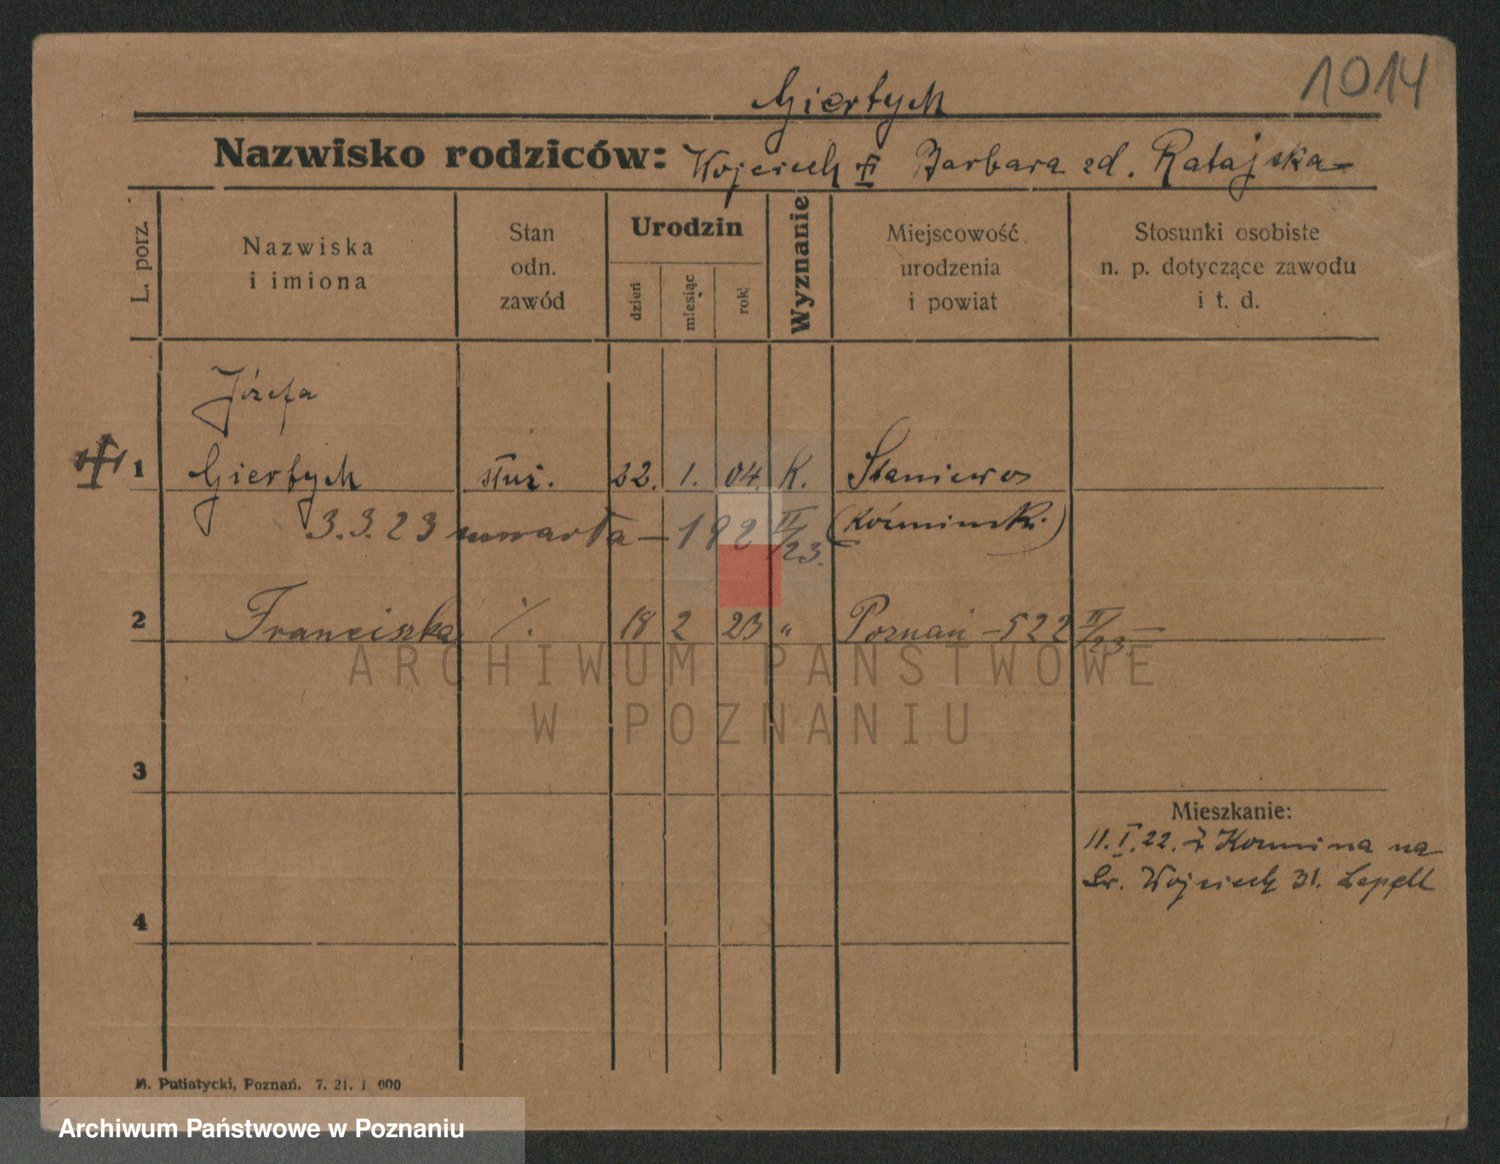 1014
Giertych
Nazwisko rodziców: Wojciech Barbara zd. Ratajska
L. porz.
Nazwiska
i imiona
Stan
odn.
zawód
Urodzin
dzień
miesiąc
rok
Wyznanie
Miejscowość
urodzenia
i powiat
Stosunki osobiste
n. p. dotyczące zawodu
i t. d.
Józefa
1 Giertych służ. 22. 1. 04. K. Staniewo
3.3.23 zmarła – 192 II/23. (Koźmińsk.)
2 Franciszka ./. 18 2 23 „ Poznań – 522 II/23
ARCHIWUM PAŃSTWOWE
W POZNANIU
3
Mieszkanie:
11. I. 22. z Koźmina na
Św. Wojciech 31.
4
M. Putiatycki, Poznań. 7. 21. 1 000
Archiwum Państwowe w Poznaniu